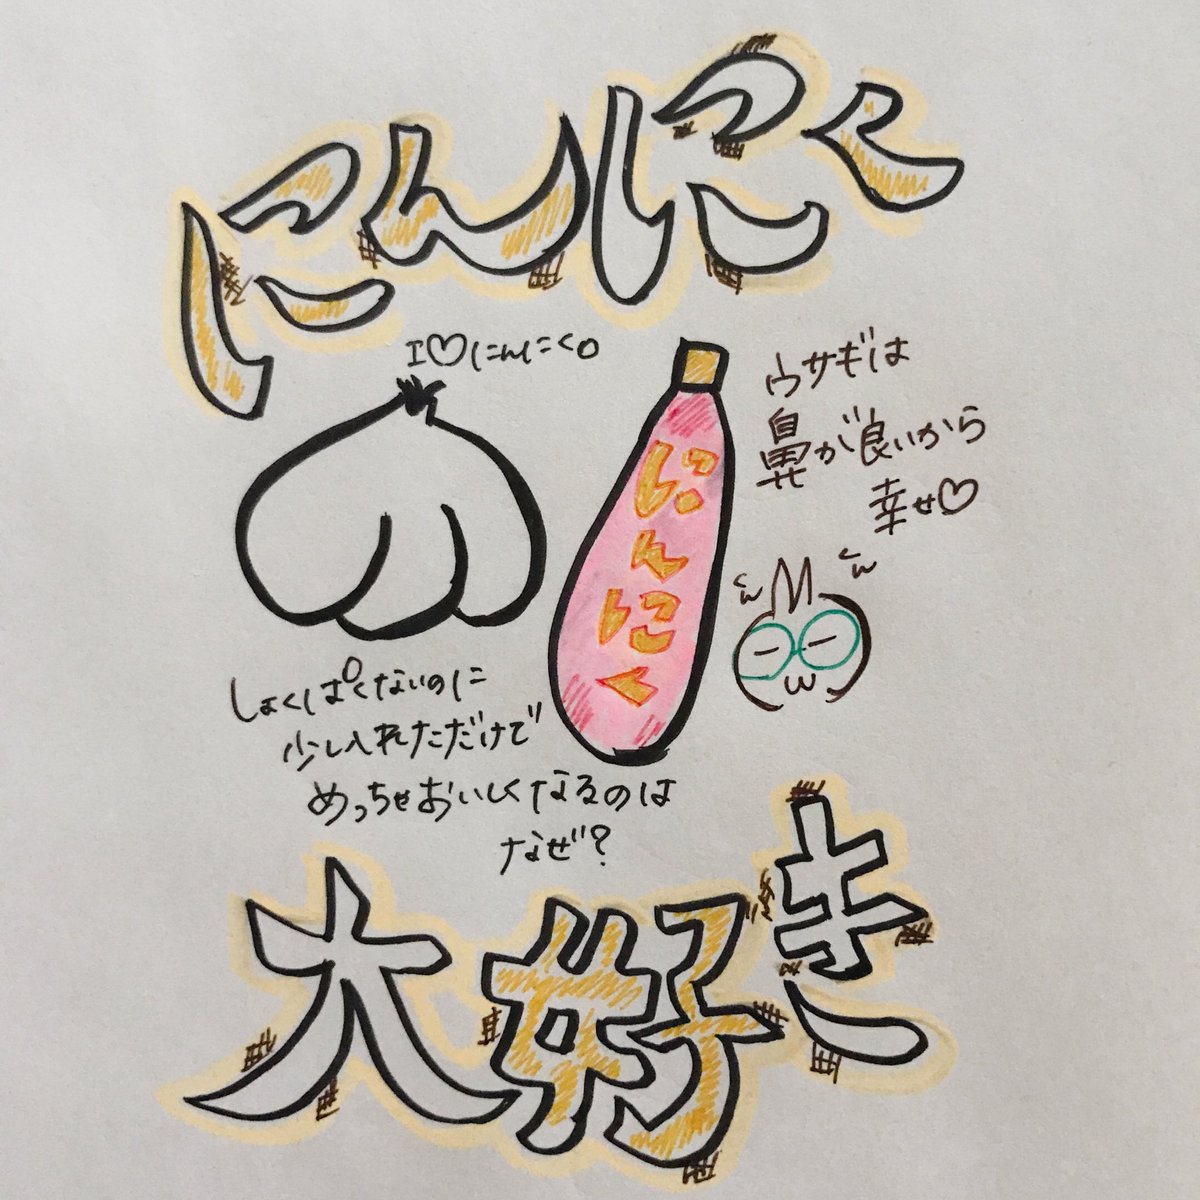 にんにく
I♡にんにく。
ウサギは
鼻が良いから
幸せ♡
にんにく
くん
くん
しょくしょっぱくないのに
少し入れただけで
めっちゃおいしくなるのは
なぜ?
大好き